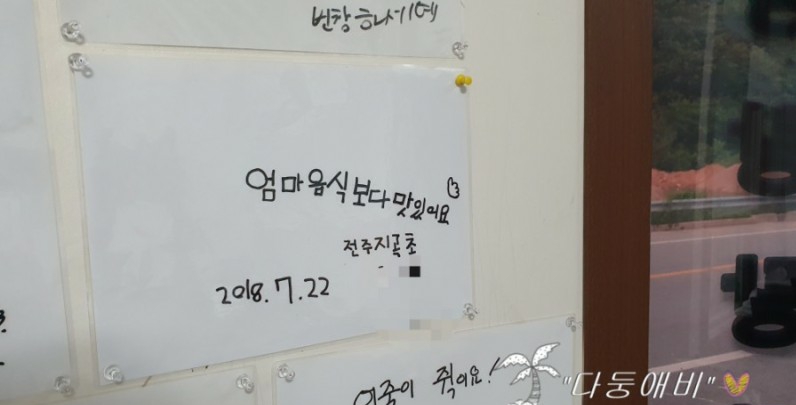 번창하나기예
엄마음식보다맛있어요
전주지곡초
2018.7.22
쥑이요!
"다둥애비"